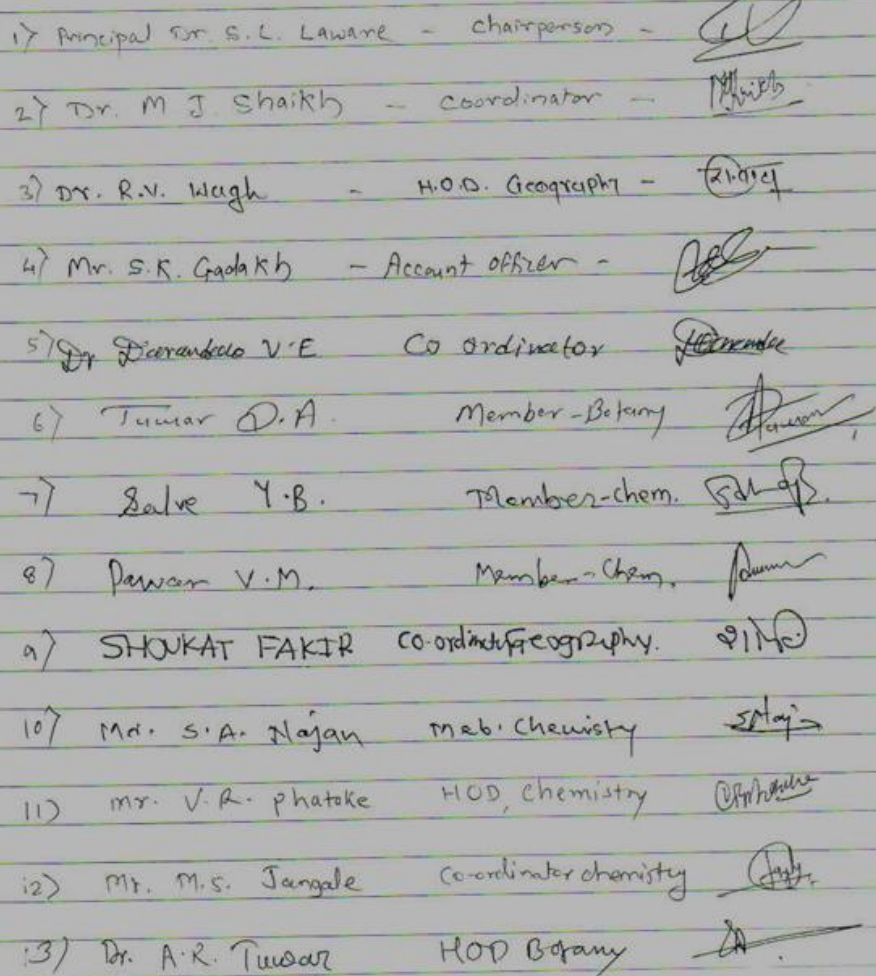 1) Principal Dr. S.L. Laware - Chairperson -
2) Dr. M J Shaikh - coordinator - Shaikh
3) Dr. R.V. Wagh - H.O.D. Geography -
4) Mr. S.K. Gadakh - Account officer -
5) Dr V.E Co ordinator
6) Tuwar D.A. Member-Botany
7) Salve Y.B. Member-chem.
8) Pawar V.M. Member-Chem.
9) SHOUKAT FAKIR Geography.
10) Mr. S.A. Najan Meb. Chemisty
11) mr. V.R. phatke HOD, Chemistry
12) Mr. M.S. Jangale Co-ordinator chemistry
13) Dr. A.R. Tuwar HOD Botany